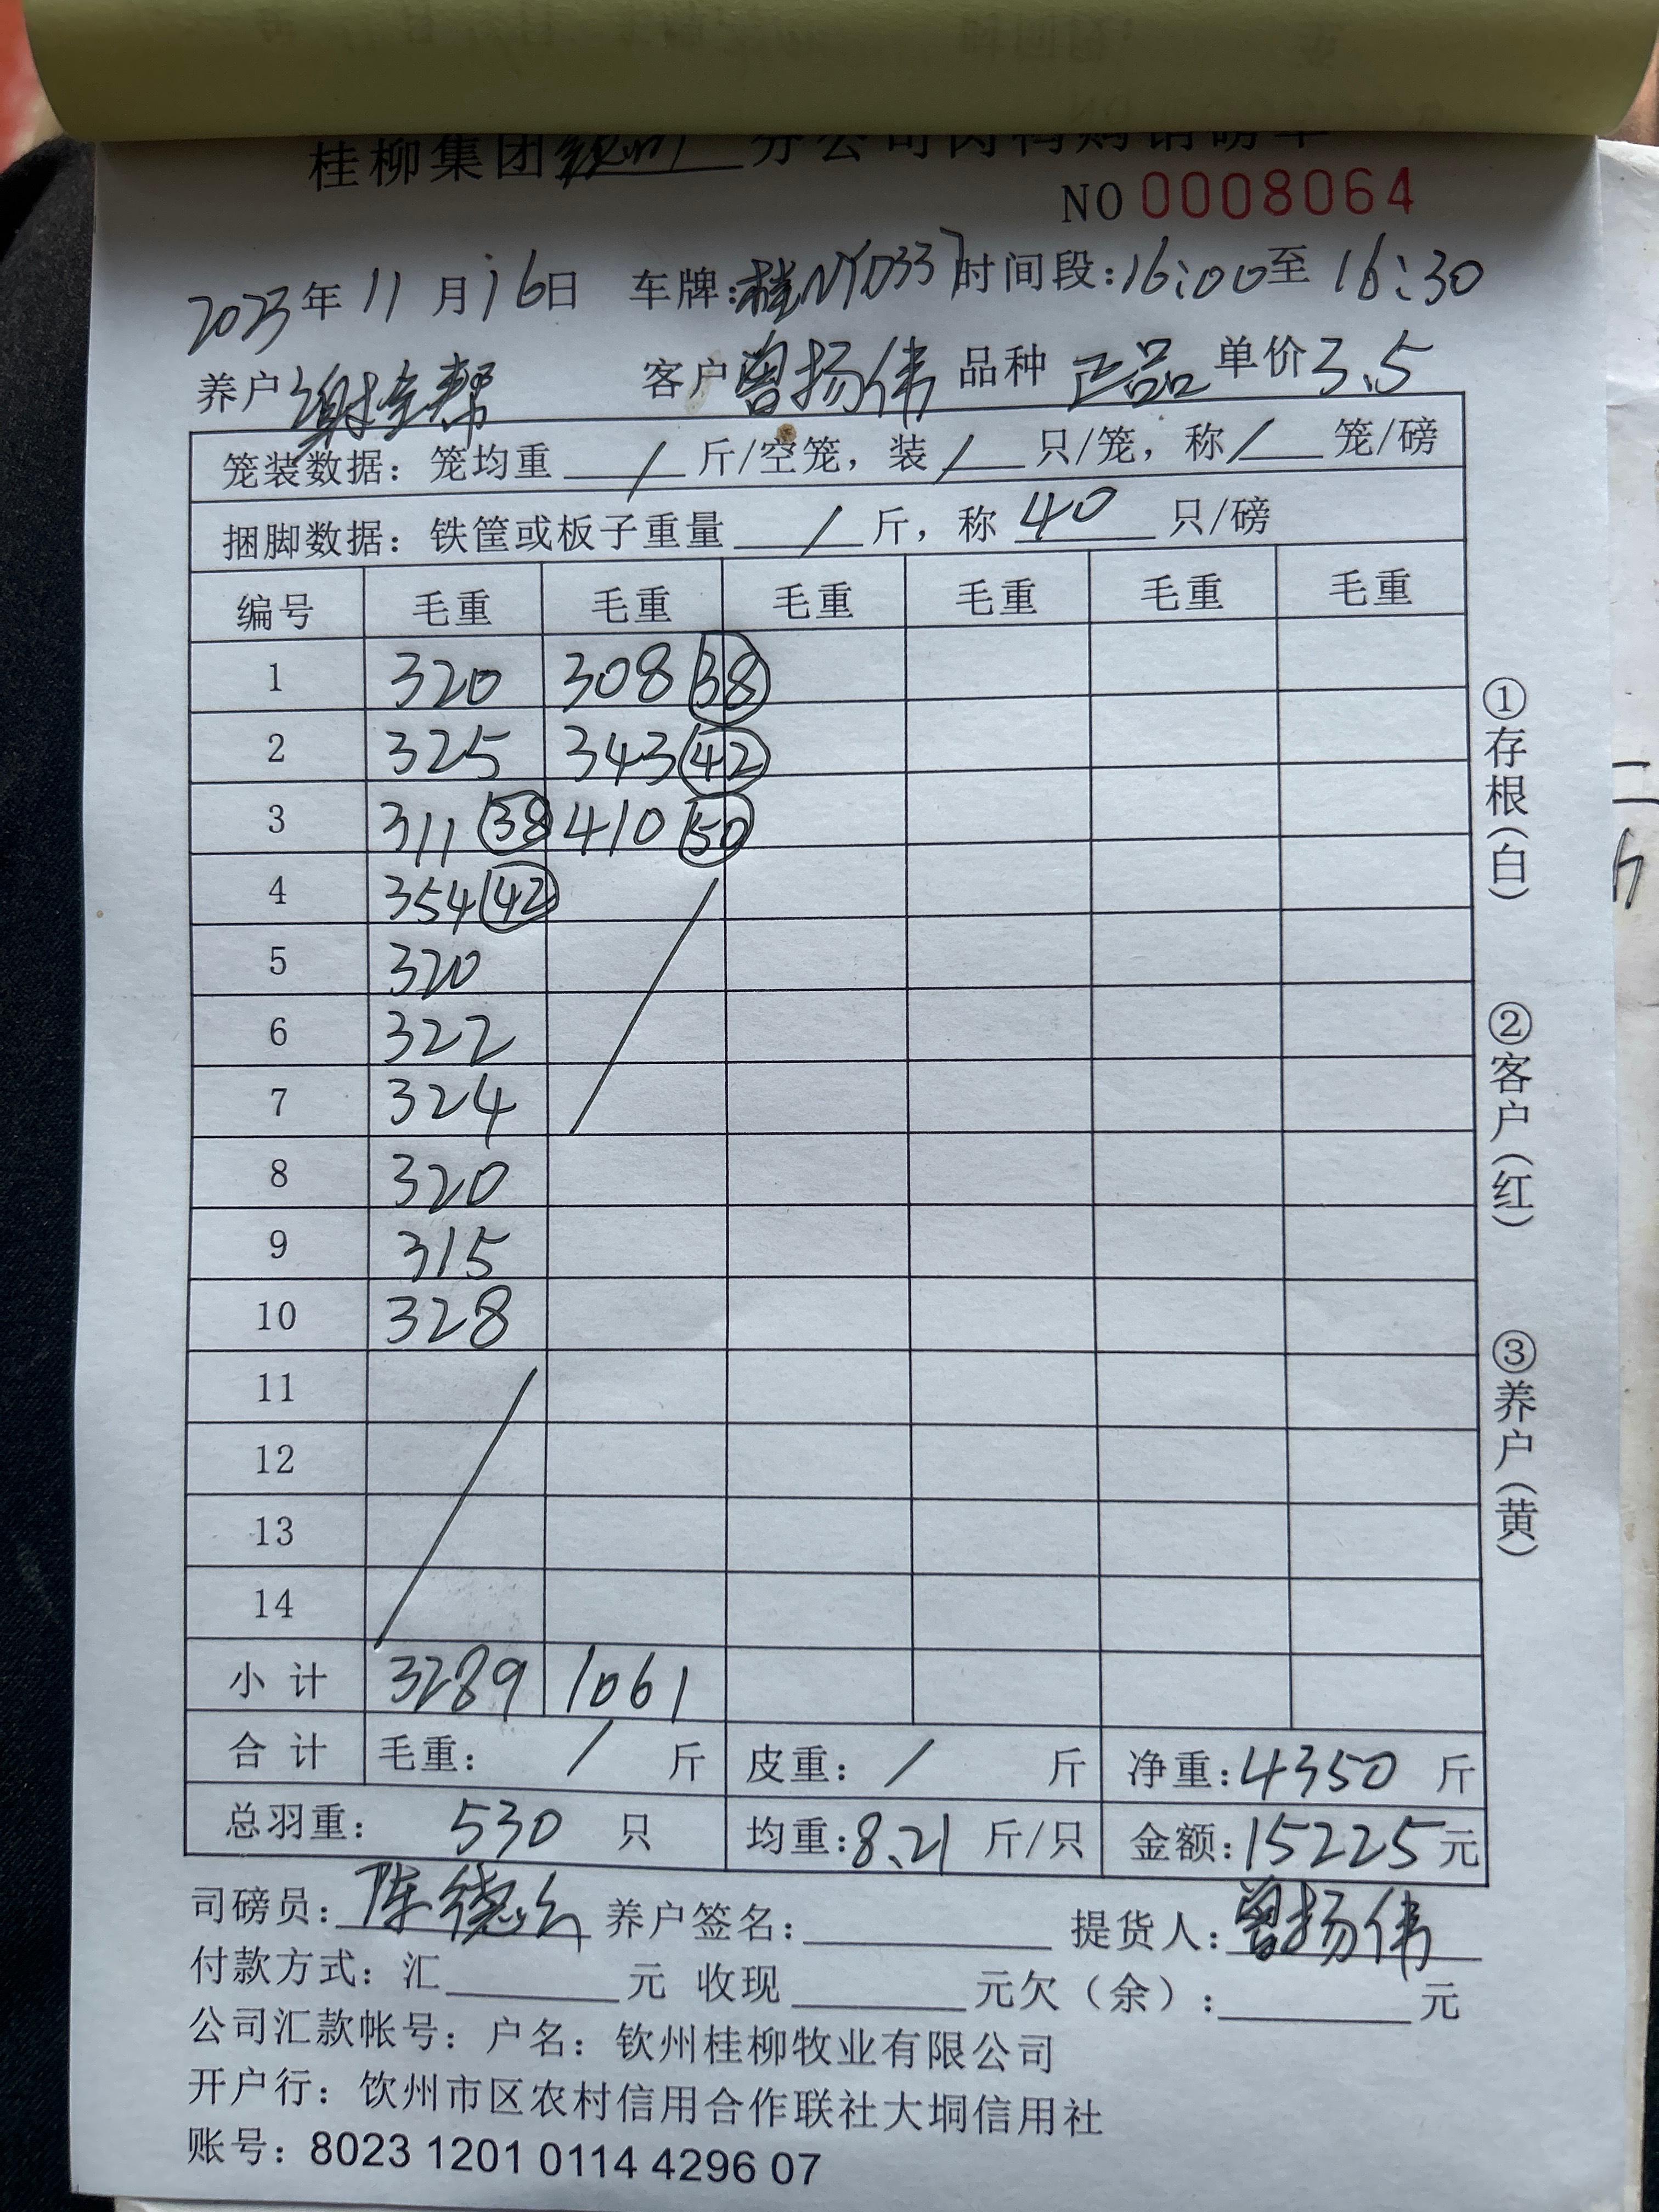 桂柳集团钦州分公司肉鸭购销磅单
NO 0008064
2023年11月16日 车牌:桂NYD337时间段:16:00至16:30
养户 谢 帮 客户曾扬伟 品种 正品 单价3.5
笼装数据：笼均重 / 斤/空笼，装 / 只/笼，称 / 笼/磅
捆脚数据：铁筐或板子重量 / 斤，称 40 只/磅
编号 毛重 毛重 毛重 毛重 毛重 毛重
1 320 308 38
2 325 343 42
3 311 38 410 50
4 354 42
5 320
6 322
7 324
8 320
9 315
10 328
11
12
13
14
小计 3289 1061
合计 毛重： / 斤 皮重： / 斤 净重:4350 斤
总羽重： 530 只 均重:8.21 斤/只 金额:15225元
司磅员：陈德 养户签名： 提货人：曾扬伟
付款方式：汇 元 收现 元欠（余）: 元
公司汇款帐号：户名：钦州桂柳牧业有限公司
开户行：钦州市区农村信用合作联社大垌信用社
账号：8023 1201 0114 4296 07
①存根(白)
②客户(红)
③养户(黄)